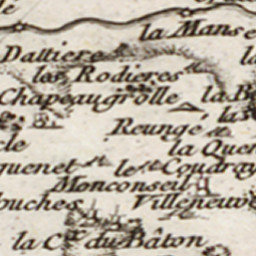 la Manse
Dattiere
les Rodieres
Chapeaugrolle
la B
las
Reungé
la Quer
quenet
le Coudray
Monconseil
ouches
Villeneuve
la C.ne du Bâton